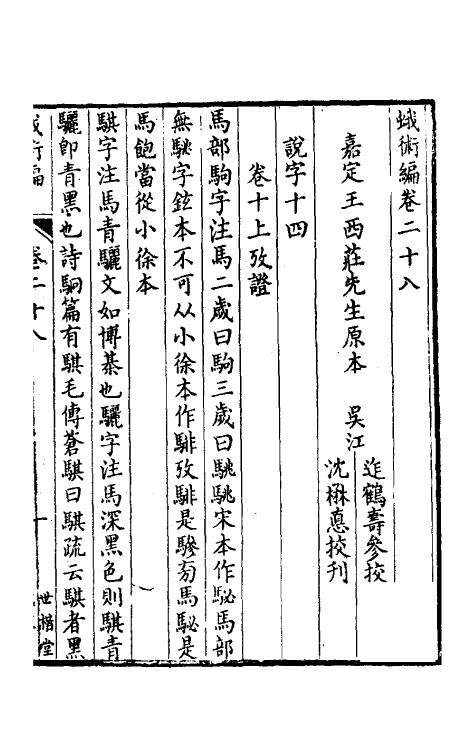 蛾術編卷二十八
嘉定王西莊先生原本　吳江
迮鶴壽參挍
沈楙悳挍刊
說字十四
卷十上攷證
馬部駒字注馬二歲曰駒三歲曰駣駣宋本作駜馬部
無駣字鉉本不可从小徐本作騑攷騑是驂旁馬駜是
馬飽當從小徐本
騏字注馬青驪文如博棊也驪字注馬深黑色則騏青
驪卽青黑也詩駉篇有騏毛傳蒼騏曰騏疏云騏者黑
蛾術編　卷二十八　一　世楷堂